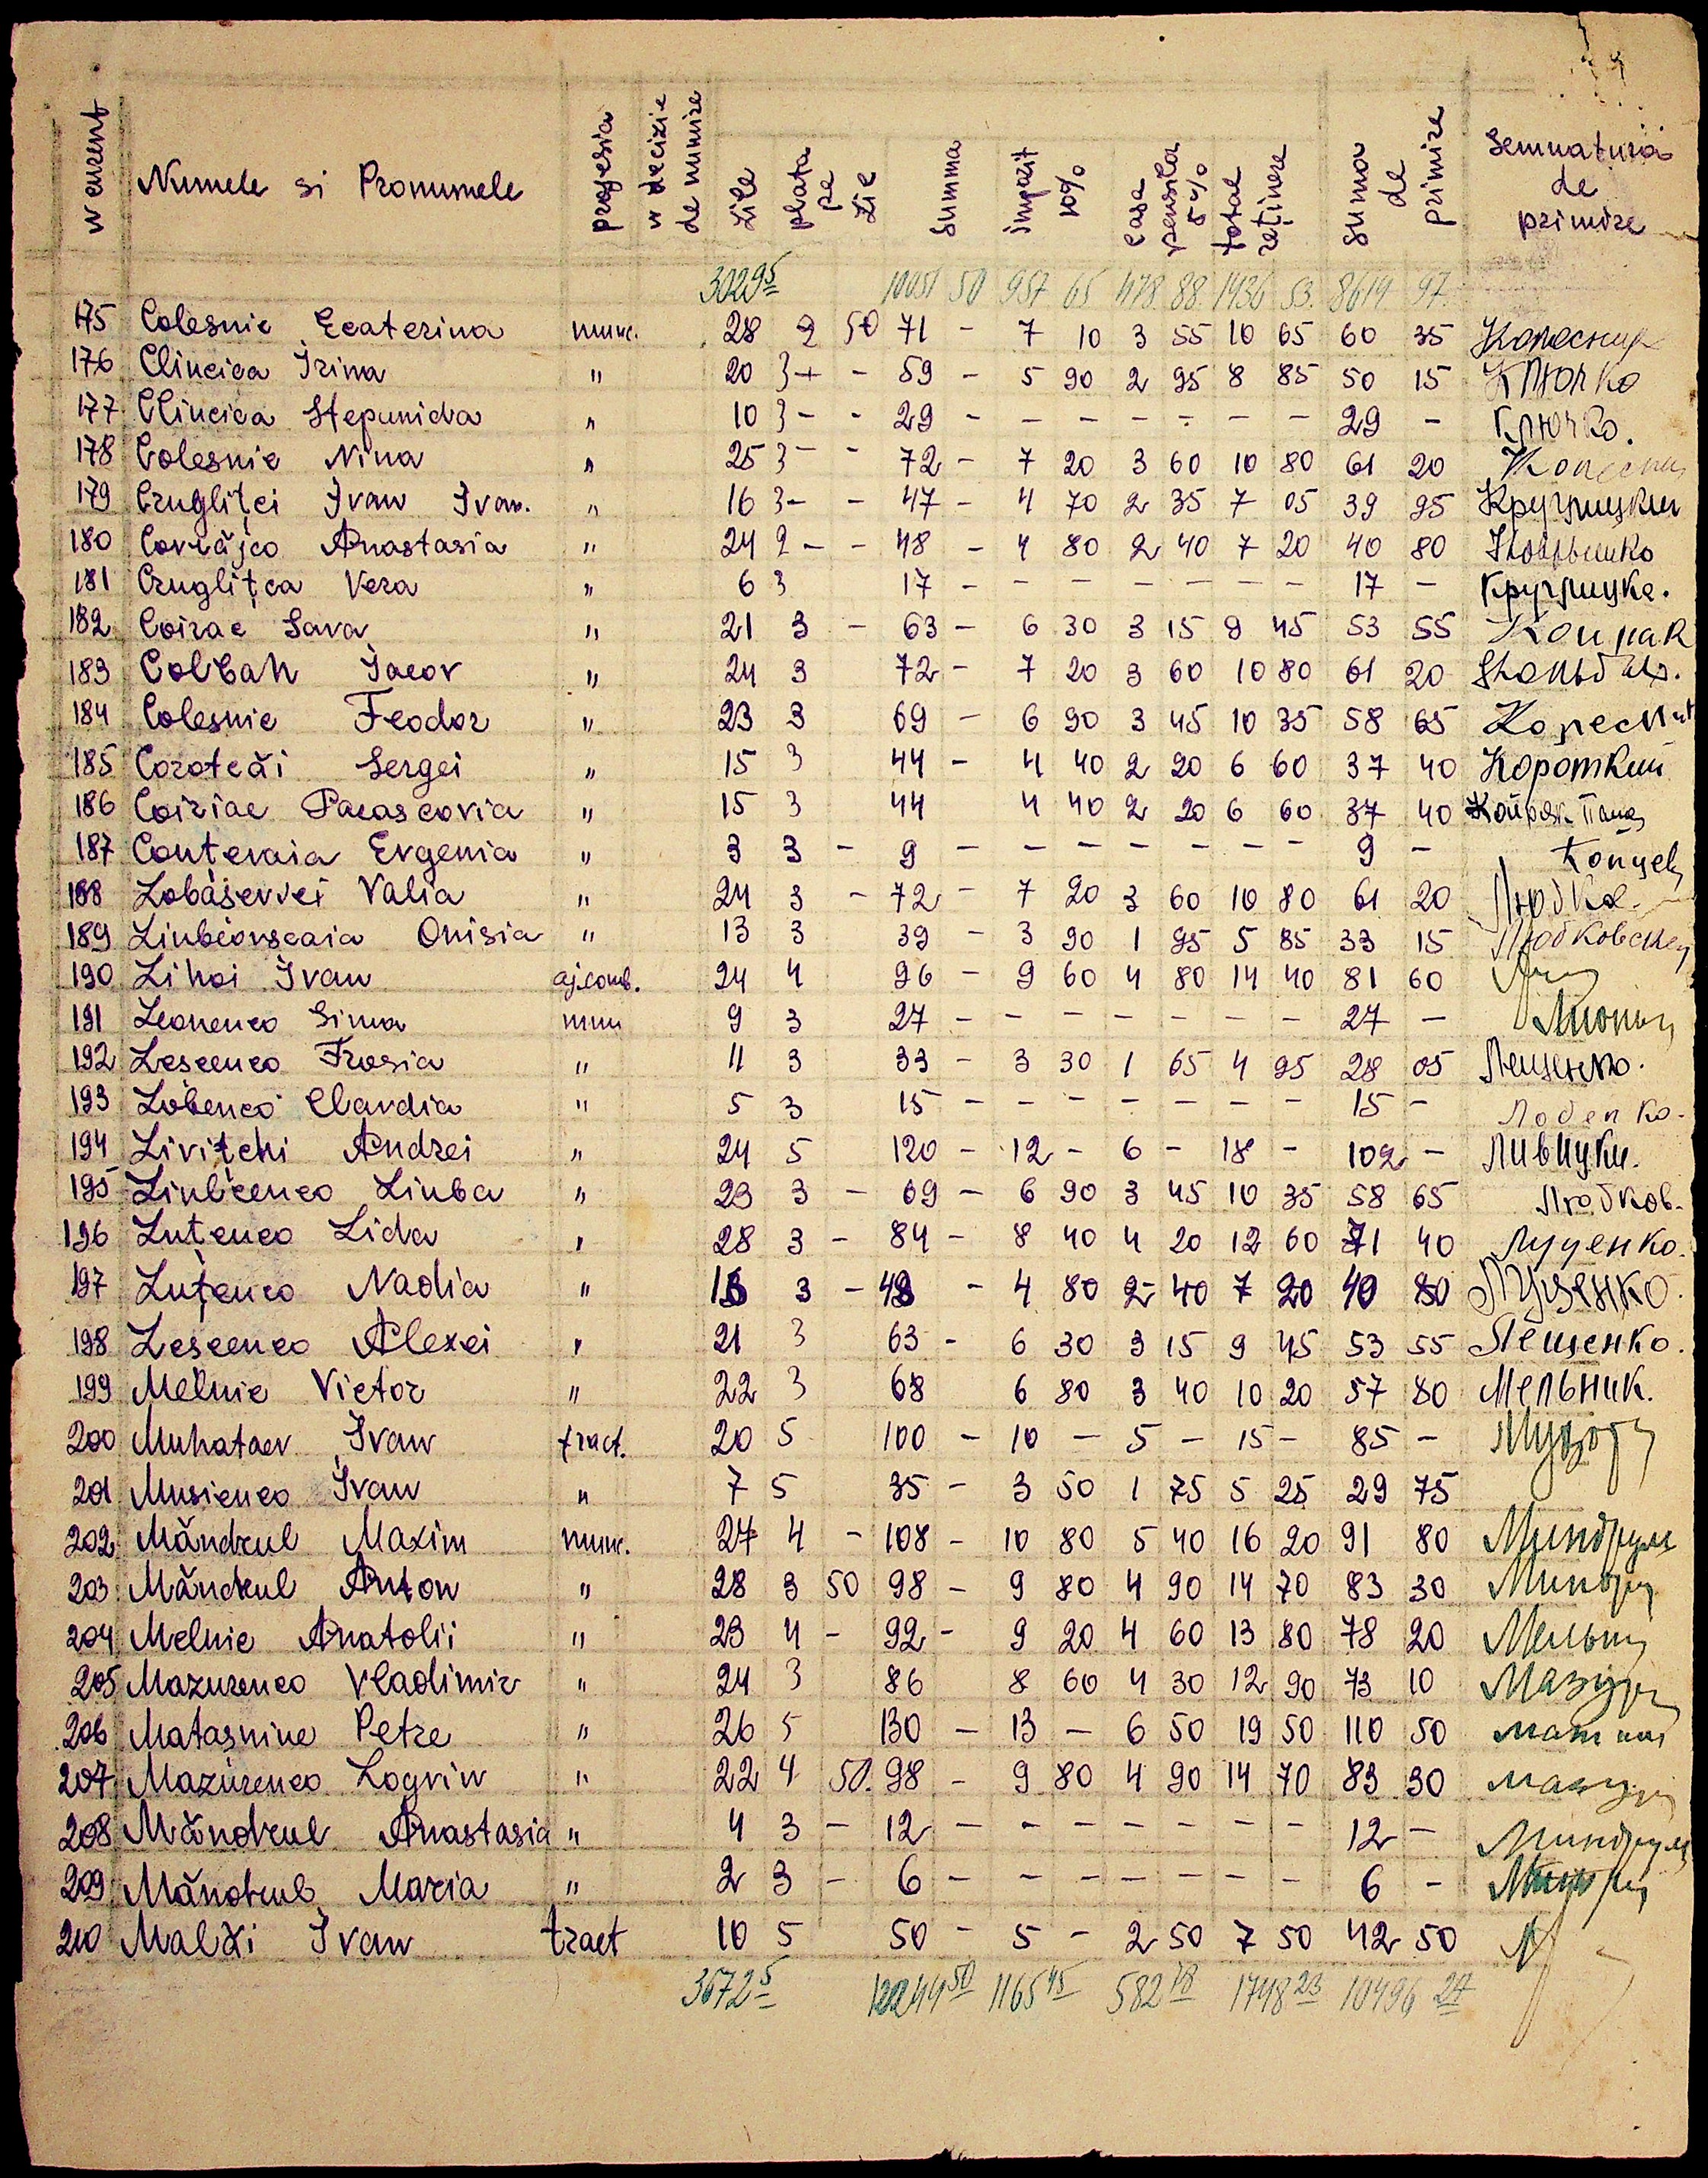 N curent Numele si Pronumele profesia N decizie de numire Zile plata pe zie Summa impozit 10% casa pensila 5% total reținere Suma de primire Semnatura de primire
3029 5 10051 50 957 65 478 88 1436 53 8614 97
175 Colesnic Ecaterina munc. 28 2 50 71 - 7 10 3 55 10 65 60 35 Колесник
176 Clincica Irina " 20 3 - - 59 - 5 90 2 95 8 85 50 15 Ключко
177 Clincica Stepanida " 10 3 - - 29 - - - - - - - 29 - Ключко.
178 Colesnic Nina " 25 3 - - 72 - 7 20 3 60 10 80 61 20 Колесник
179 Crugliței Ivan Ivan. " 16 3 - - 47 - 4 70 2 35 7 05 39 95 Круглицкий
180 Covrăjco Anastasia " 24 2 - - 48 - 4 80 2 40 7 20 40 80
181 Cruglițca Vera " 6 3 17 - - - - - - - 17 - Круглицка.
182 Coirac Sava " 21 3 - 63 - 6 30 3 15 9 45 53 55 Коирак
183 Colbah Iacov " 24 3 72 - 7 20 3 60 10 80 61 20 Кольбах.
184 Colesnic Feodor " 23 3 69 - 6 90 3 45 10 35 58 65 Колесник
185 Corotcăi Sergei " 15 3 44 - 4 40 2 20 6 60 37 40 Короткий
186 Coiriac Parascovia " 15 3 44 4 40 2 20 6 60 37 40 Койряк
187 Conțevaia Evgenia " 3 3 - 9 - - - - - - - 9 - Концев
188 Lobașevvei Valia " 24 3 - 72 - 7 20 3 60 10 80 61 20
189 Liubcovscaia Onisia " 13 3 39 - 3 90 1 95 5 85 33 15 Любковская
190 Lihoi Ivan aj.comb. 24 4 96 - 9 60 4 80 14 40 81 60
191 Leonenco Sima mun 9 3 27 - - - - - - - 27 -
192 Lescenco Frosia " 11 3 33 - 3 30 1 65 4 95 28 05 Лещенко.
193 Lobenco Clavdia " 5 3 15 - - - - - - - 15 - Лобенко.
194 Livițchi Andrei " 24 5 120 - 12 - 6 - 18 - 102 - Ливицки.
195 Liubcenco Liuba " 23 3 - 69 - 6 90 3 45 10 35 58 65 Любков.
196 Luțenco Lida " 28 3 - 84 - 8 40 4 20 12 60 71 40 Луценко.
197 Luțenco Nadia " 16 3 - 48 - 4 80 2 40 7 20 40 80 Луценко.
198 Lescenco Alexei " 21 3 63 - 6 30 3 15 9 45 53 55 Лещенко.
199 Melnic Victor " 22 3 68 6 80 3 40 10 20 57 80 Мельник.
200 Muhataev Ivan tract. 20 5 100 - 10 - 5 - 15 - 85 -
201 Musienco Ivan " 7 5 35 - 3 50 1 75 5 25 29 75
202 Măndrul Maxim munc. 27 4 - 108 - 10 80 5 40 16 20 91 80 Миндруль
203 Măndrul Anton " 28 3 50 98 - 9 80 4 90 14 70 83 30 Миндру
204 Melnic Anatolii " 23 4 - 92 - 9 20 4 60 13 80 78 20 Мельни
205 Mazurenco Vladimir " 24 3 86 8 60 4 30 12 90 73 10 Мазур
206 Matasnine Petre " 26 5 130 - 13 - 6 50 19 50 110 50
207 Mazurenco Logvin " 22 4 50. 98 - 9 80 4 90 14 70 83 30 мазур
208 Măndrul Anastasia " 4 3 - 12 - - - - - - - 12 - Миндруль
209 Măndrul Maria " 2 3 - 6 - - - - - - - 6 - Миндру
210 Malxi Ivan tract 10 5 50 - 5 - 2 50 7 50 42 50
3672 5 12244 50 1165 45 582 78 1748 23 10496 27